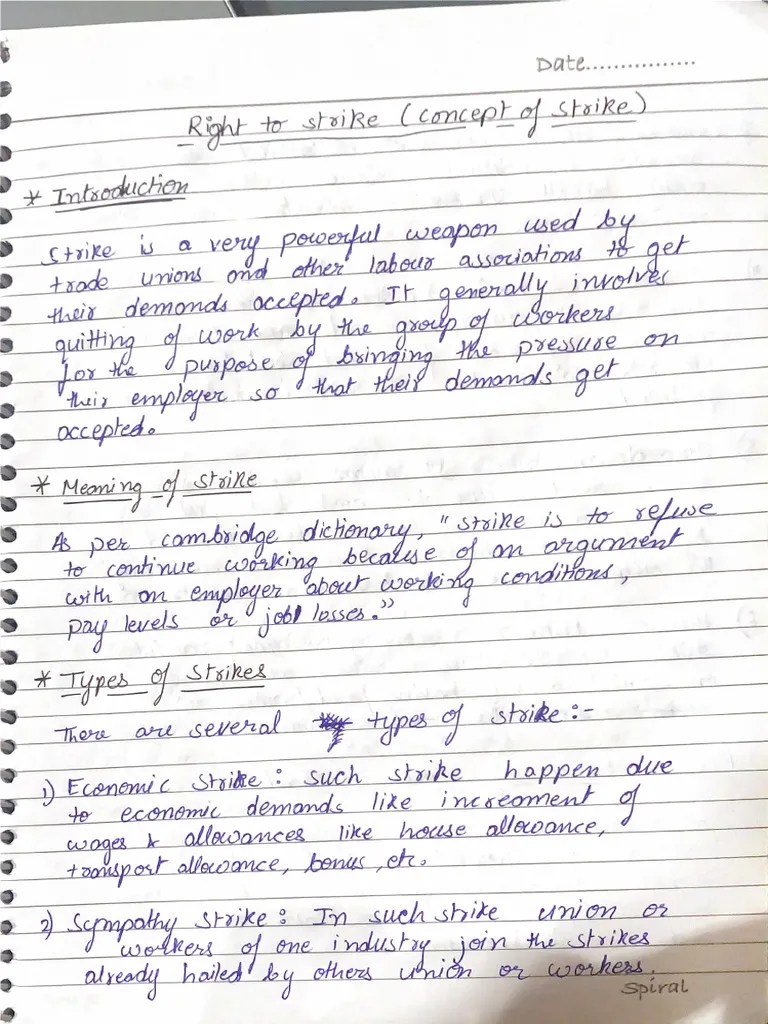 Date................
Right to strike (concept of strike)
* Introduction
Strike is a very powerful weapon used by
trade unions and other labour associations to get
their demands accepted. It generally involves
quitting of work by the group of workers
for the purpose of bringing the pressure on
their employer so that their demands get
accepted.
* Meaning of strike
As per cambridge dictionary, "strike is to refuse
to continue working because of an argument
with an employer about working conditions,
pay levels or job losses."
* Types of strikes
There are several types of strike:-
1) Economic strike: such strike happen due
to economic demands like increament of
wages & allowances like house allowance,
transport allowance, bonus, etc.
2) Sympathy strike: In such strike union or
workers of one industry join the strikes
already hailed by others union or workers.
Spiral